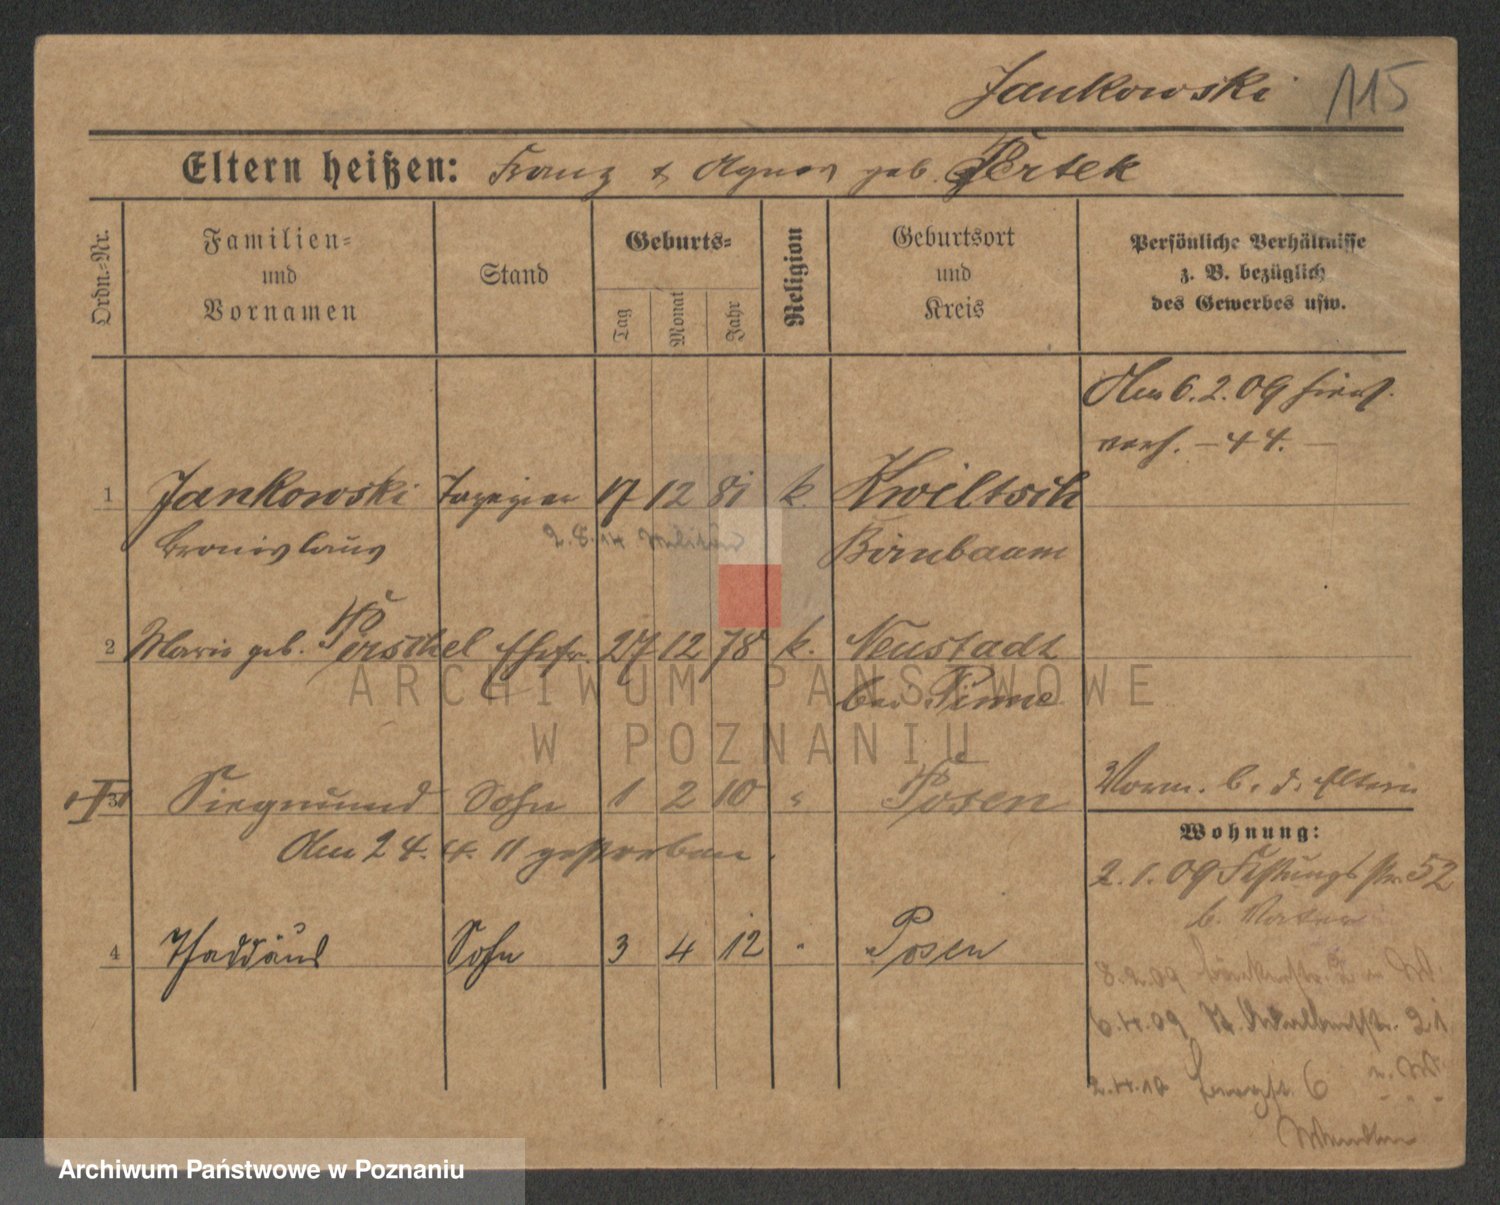 Jankowski 115
Eltern heißen: Franz & Agnes geb. Pertek
Ordn.-Nr.
Familien-
und
Vornamen
Stand
Geburts-
Tag
Monat
Jahr
Religion
Geburtsort
und
Kreis
Persönliche Verhältnisse
z. B. bezüglich
des Gewerbes usw.
Am 6.2.09 hier
verh. – 44. –
1 Jankowski Tapezierer 17 12 81 k. Kwiltsch
Bronislaus 2.8.14 Militär Birnbaum
2 Marie geb. Perschel Ehefr. 27 12 78 k. Neustadt
bei Pinne
3 Siegmund Sohn 1 2 10 " Posen
Am 24. 4. 11 gestorben.
Vorm. b. d. Eltern
4 Thaddäus Sohn 3 4 12 " Posen
Wohnung:
2.1.09 Festungsstr. 52
b. Vater
8.2.09
6.4.09 21
2.4.12 6
ARCHIWUM PAŃSTWOWE
W POZNANIU
Archiwum Państwowe w Poznaniu